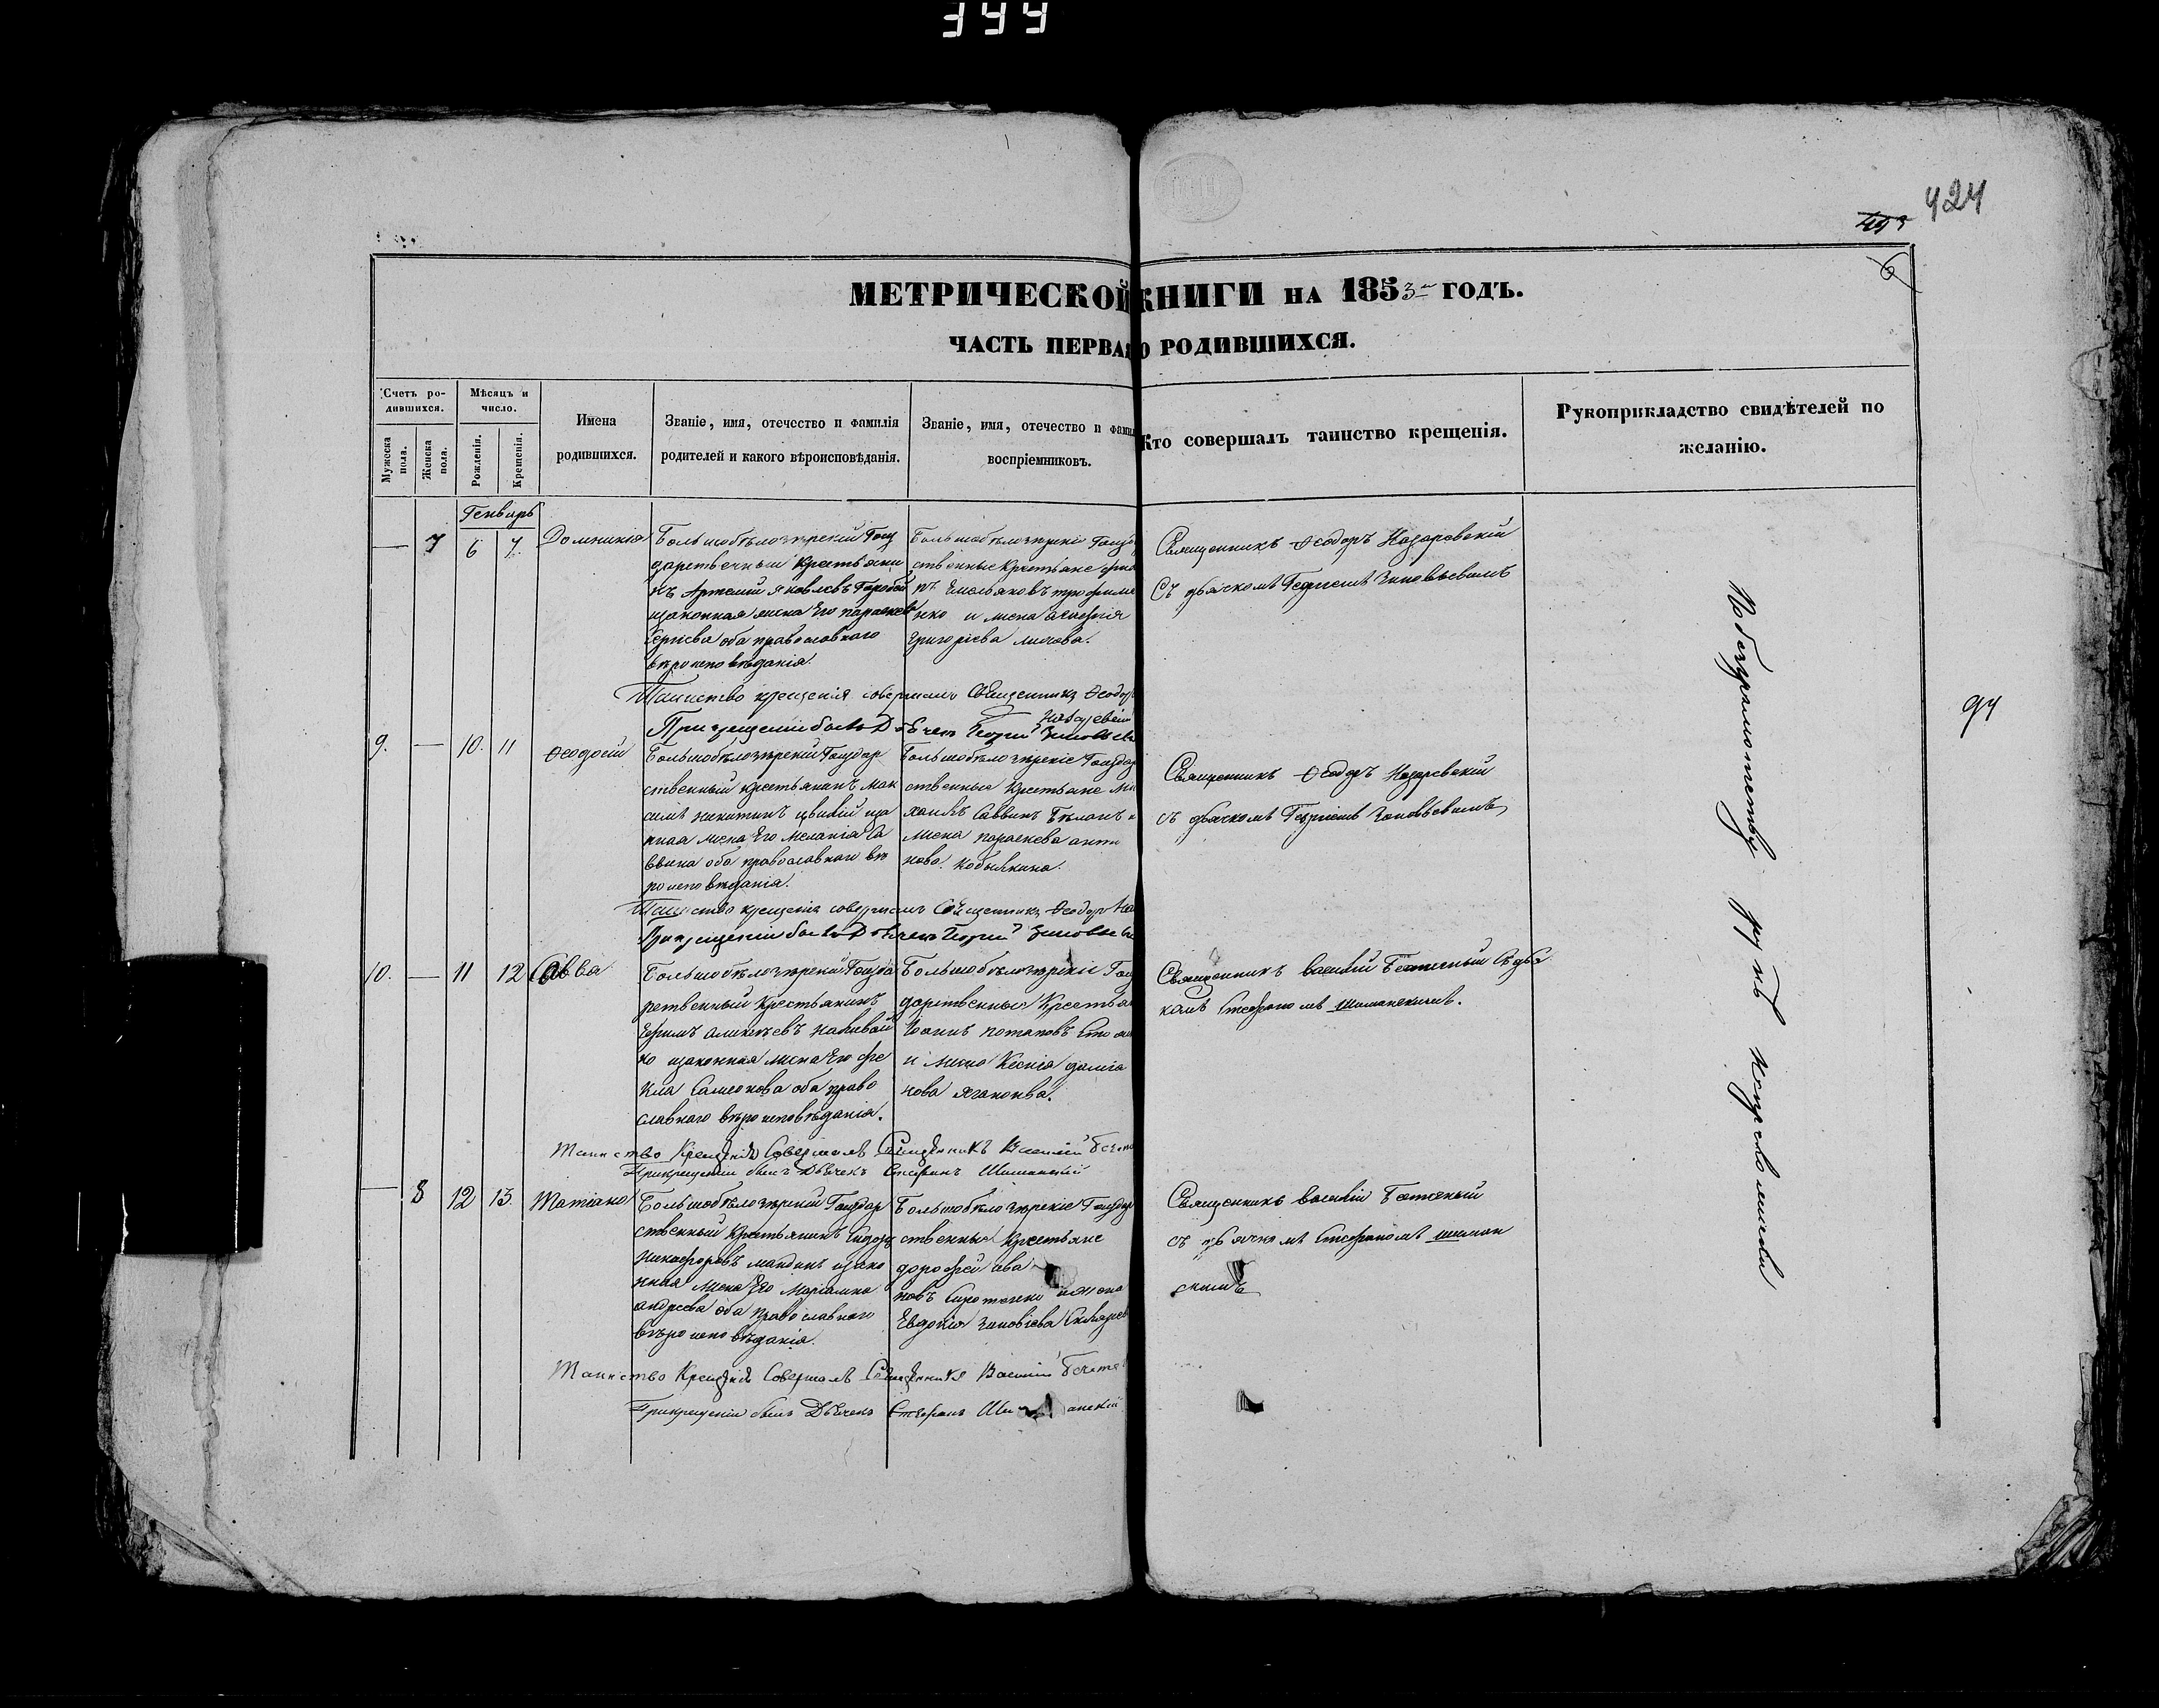 399
424
6
МЕТРИЧЕСКОЙ КНИГИ НА 1853 ГОДЪ.
ЧАСТЬ ПЕРВАЯ О РОДИВШИХСЯ.
Счетъ ро-
дившихся.
Мужеска пола.
Женска пола.
Мѣсяцъ и
число.
Рожденія.
Крещенія.
Имена
родившихся.
Званіе, имя, отечество и фамилія
родителей и какого вѣроисповѣданія.
Званіе, имя, отечество и фами
воспріемниковъ.
Кто совершалъ таинство крещенія.
Рукоприкладство свидѣтелей по
желанію.
Генварь
7 6 7. Домникія
Большобѣлозерскій Госу
дарственный Крестьяни
нъ Артемій Яковлевъ
законная жена Его параскев
Сергіева оба православнаго
вѣроисповѣданія.
Большобѣлозерскіе Госуда
ственные Крестьяне
нко и жена
Григоріева
Священникъ Ѳеодоръ Назаревскій
Съ дьячкомъ Георгіемъ Зиновьевымъ
Таинство крещенія совершалъ Священникъ Ѳеодоръ
Назаревскій
При крещеніи былъ Дьячекъ Георгій Зиновьев
9. 10. 11 Ѳеодосій
Большобѣлозерскій Государ
ственный крестьянинъ Мак
симъ Никитинъ цвилій за
нная жена Его Меланія Са
ввина оба православнаго вѣ
роисповѣданія.
Большобѣлозерскіе Государ
ственные Крестьяне Ми
хаилъ Саввинъ Бѣланъ и
жена параскева анти
нова Кобылкина.
Священникъ Ѳеодоръ Назаревскій
съ дьячкомъ Георгіемъ Зиновьевымъ
Таинство крещенія совершалъ Священникъ Ѳеодоръ На
При крещеніи былъ Дьячекъ Георгій Зиновьев
10. 11 12 Савва
Большобѣлозерскій Госуда
рственный Крестьянинъ
Ефимъ Наливай
ко законная жена Его Ѳе
кла Самсонова оба право
славнаго вѣроисповѣданія.
Большобѣлозерскіе Госу
дарственные Крестья
Іоаннъ Потаповъ
и жена Ксенія
Священникъ Василій Съ дья
комъ Стефаномъ
Таинство Крещенія Совершалъ Священникъ Василій
При крещеніи былъ Дьячекъ Стефанъ Шиманскій
8 12 13. Татіана
Большобѣлозерскій Государ
ственный Крестьянинъ Сидоръ
Никифоровъ законо
нная жена Его Маріамна
андреева оба православнаго
вѣроисповѣданія.
Большобѣлозерскіе Государ
ственные Крестьяне
дорофей ива
новъ Сиротенко и жена
Евдокія Зиновіева
Священникъ Василій
съ дьячкомъ Стефаномъ шиман
скимъ
Таинство Крещенія Совершалъ Священникъ Василій
При крещеніи былъ Дьячекъ Стефанъ Ши анскій
По безграмотству рукъ
94